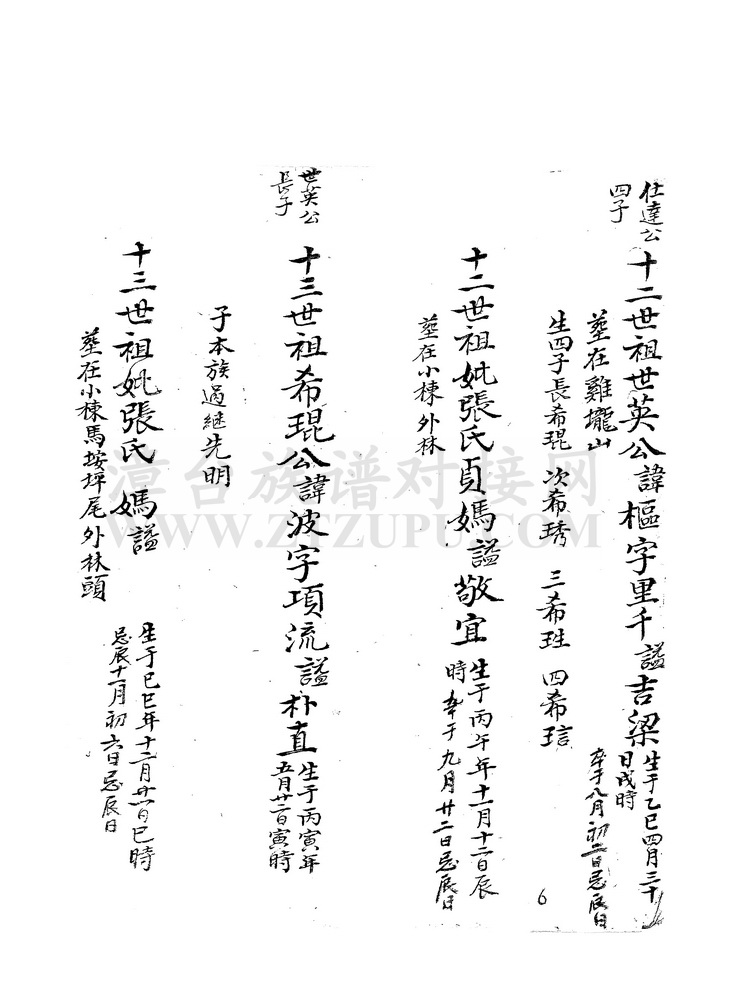 仕達公
四子
十二世祖世英公諱樞字里千謚吉梁
生于乙巳四月三十
日戌時
卒于八月初二日忌辰日
塟在雞壠山
生四子長希琨 次希琇 三希珄 四希琂
十二世祖妣張氏貞媽謚敬宜
生于丙午年十一月十二日辰
時 卒于九月廿二日忌辰日
塟在小棟外林
世英公
長子
十三世祖希琨公諱波字項流謚朴直
生于丙寅年
五月廿二日寅時
子本族過継先明
十三世祖妣張氏 媽謚
生于己巳年十二月廿一日巳時
忌辰十一月初六日忌辰日
塟在小棟馬垵坪尾外林頭
6
漳台族谱对接网
WWW.ZTZUPU.COM